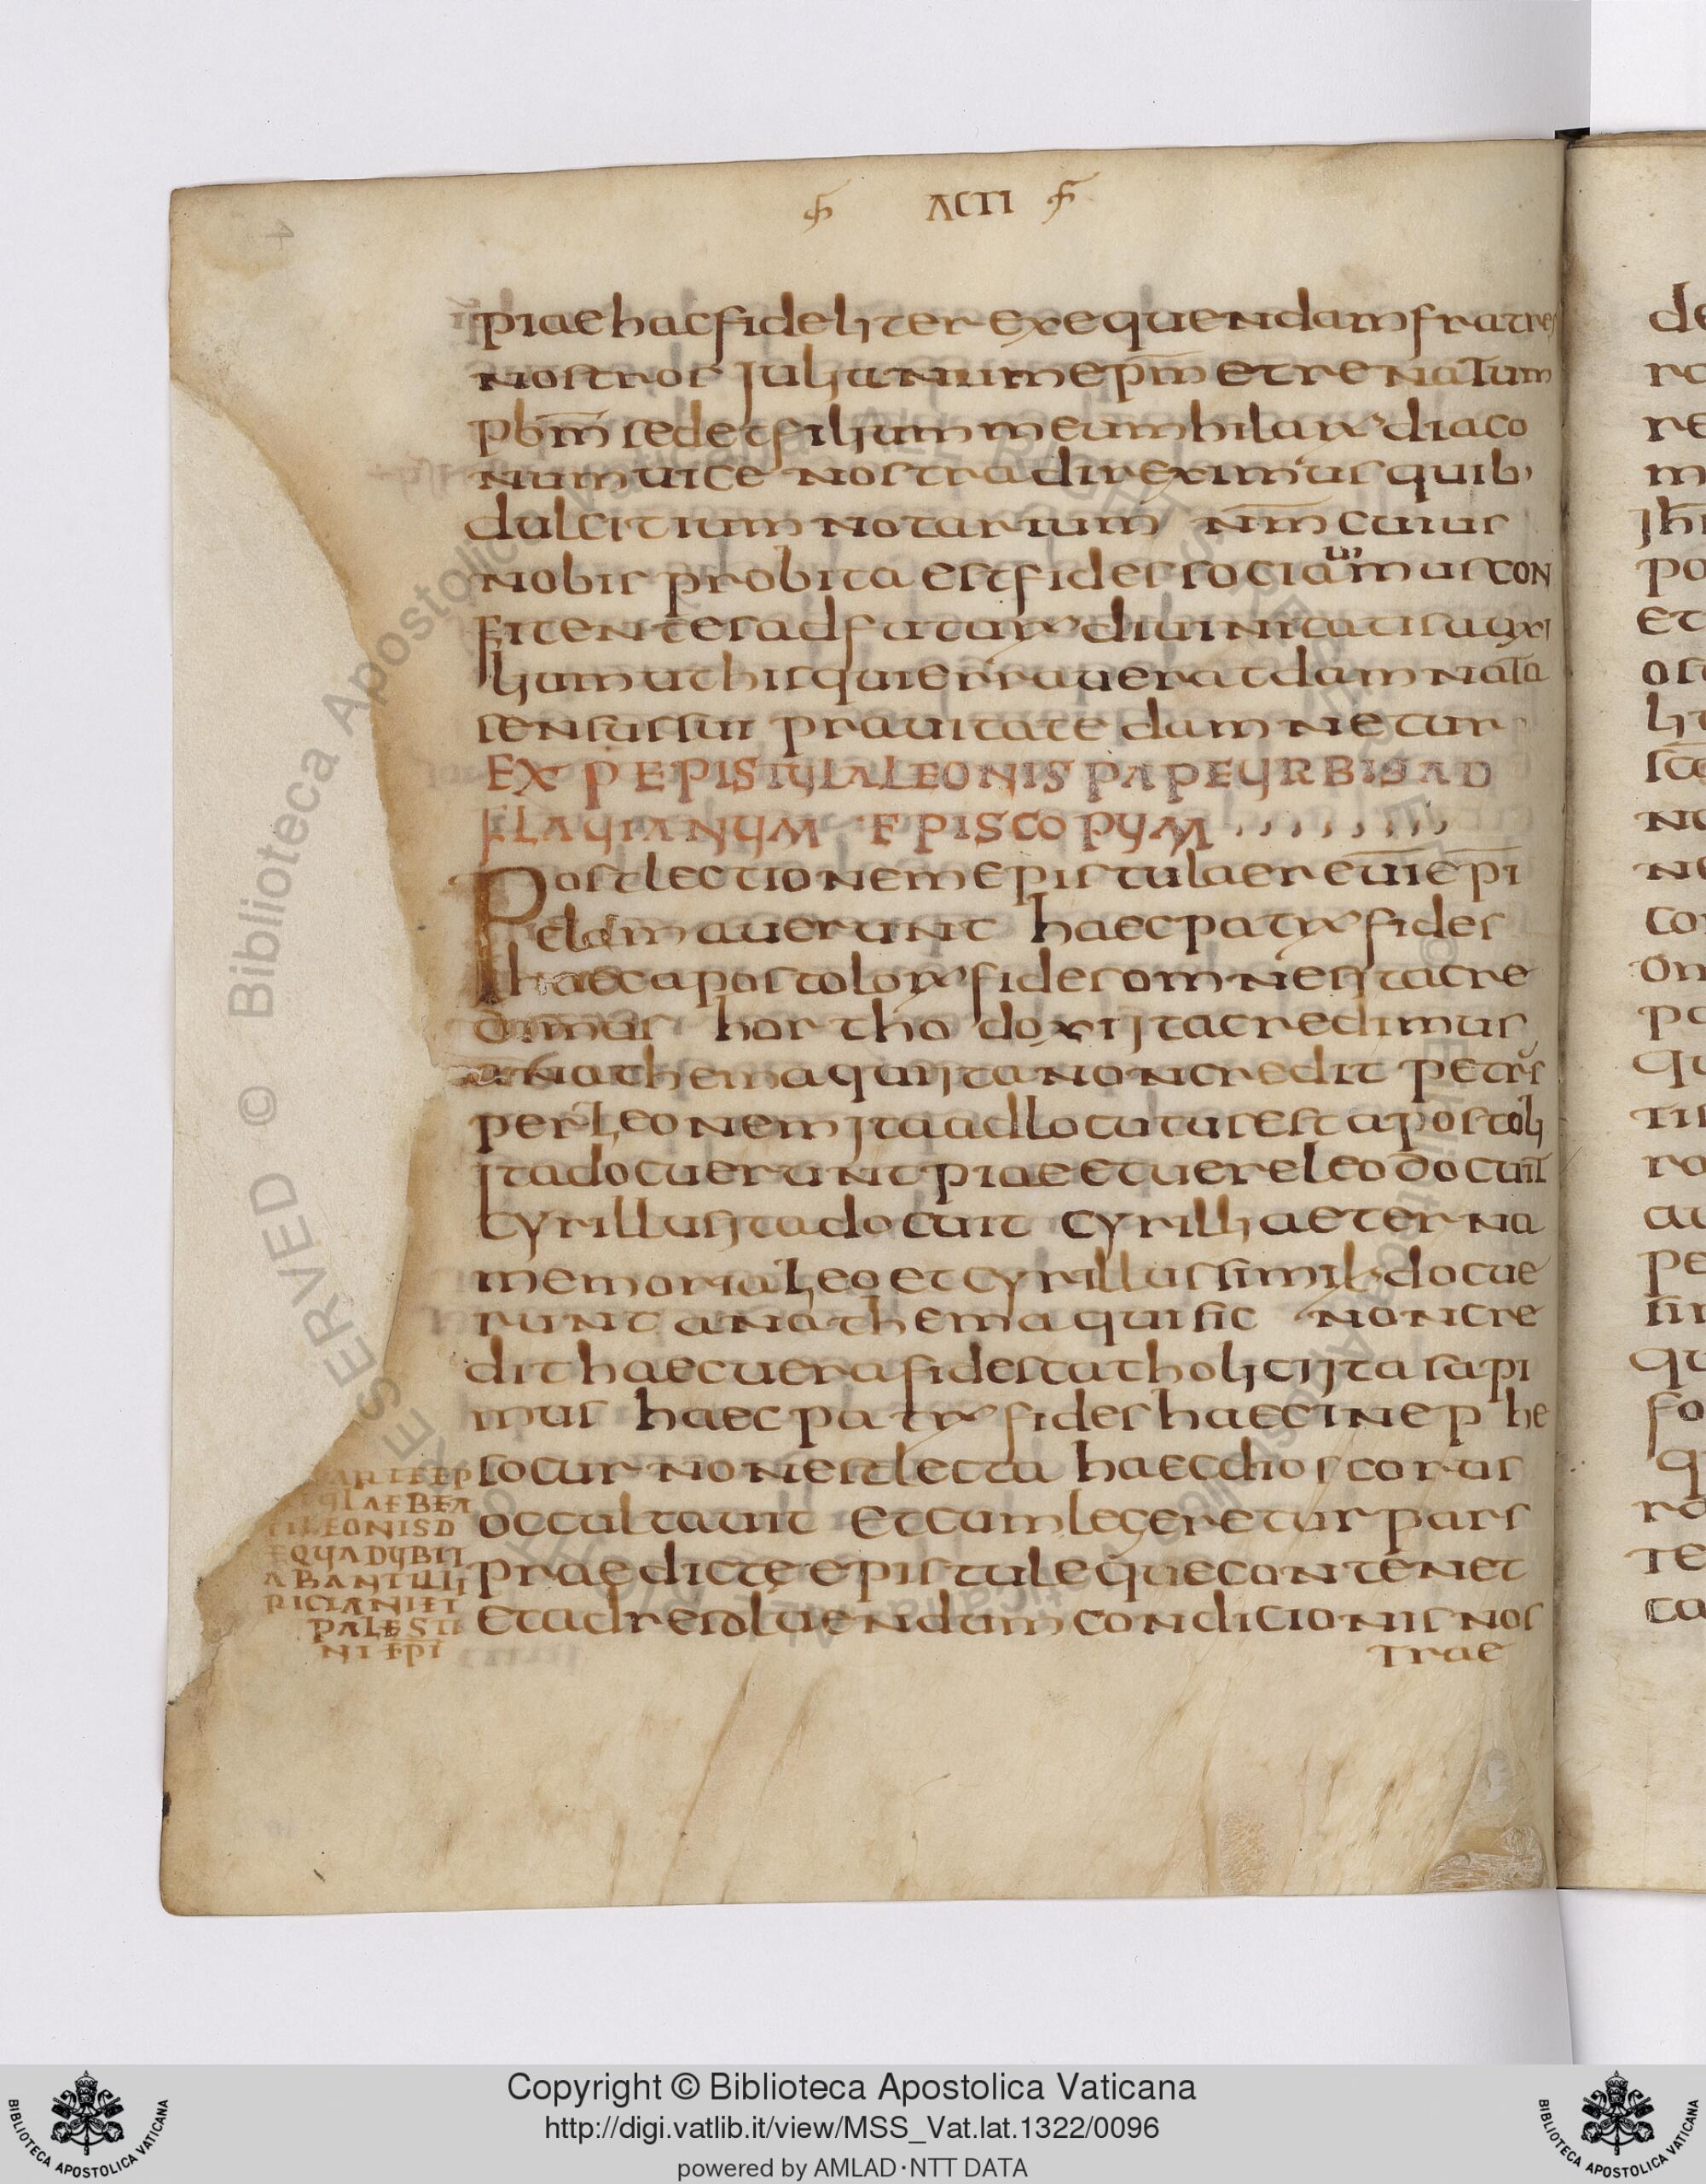 ACTI
piae hac fideliter exequendam fratres
nostros Julianum epm et renatum
pbm sedet filium meum hilarum diaco
num uice nostra direximus quib,
dulcitium notarium nm cuius
nobis probita est fides sociauimus con
fitentes ad futarum diuinitatis auxi
lium ut his qui errauerat damnata
sensus sui prauitate damnetur
EXP EPISTULA LEONIS PAPE URBIS AD
FLAUIANUM EPISCOPUM , , , , , , , ,
Post lectionem epistulae reuie epi
clamauerunt haec patrum fides
haec apostolorum fides omnes ita cre
dimus hortho doxi ita credimus
anathema qui ita non credit petrus
per Leonem ita adlocutus est apostoli
ita docuerunt piae et uere leo docuit
Cyrillus ita docuit cyrilli aeterna
memoria Leo et cyrillus simili docue
runt anathema qui sic non cre
dit haec uera fides catholici ita sapi
mus haec patrum fides haec in ephe
so cur non est lecta haec dioscorus
occultauit et cum legeretur pars
praedicte epistule que contenet
et ad resoluendam condicionis nos
trae
PARTE EP
TULAE BEA
TI LEONIS D
EQUA DUBIT
ABANT ILLI
RICIANI ET
PALESTI
NI EPI
de
ro
re
m
po
et
Copyright © Biblioteca Apostolica Vaticana
http://digi.vatlib.it/view/MSS_Vat.lat.1322/0096
powered by AMLAD·NTT DATA
BIBLIOTECA APOSTOLICA VATICANA
BIBLIOTECA APOSTOLICA VATICANA